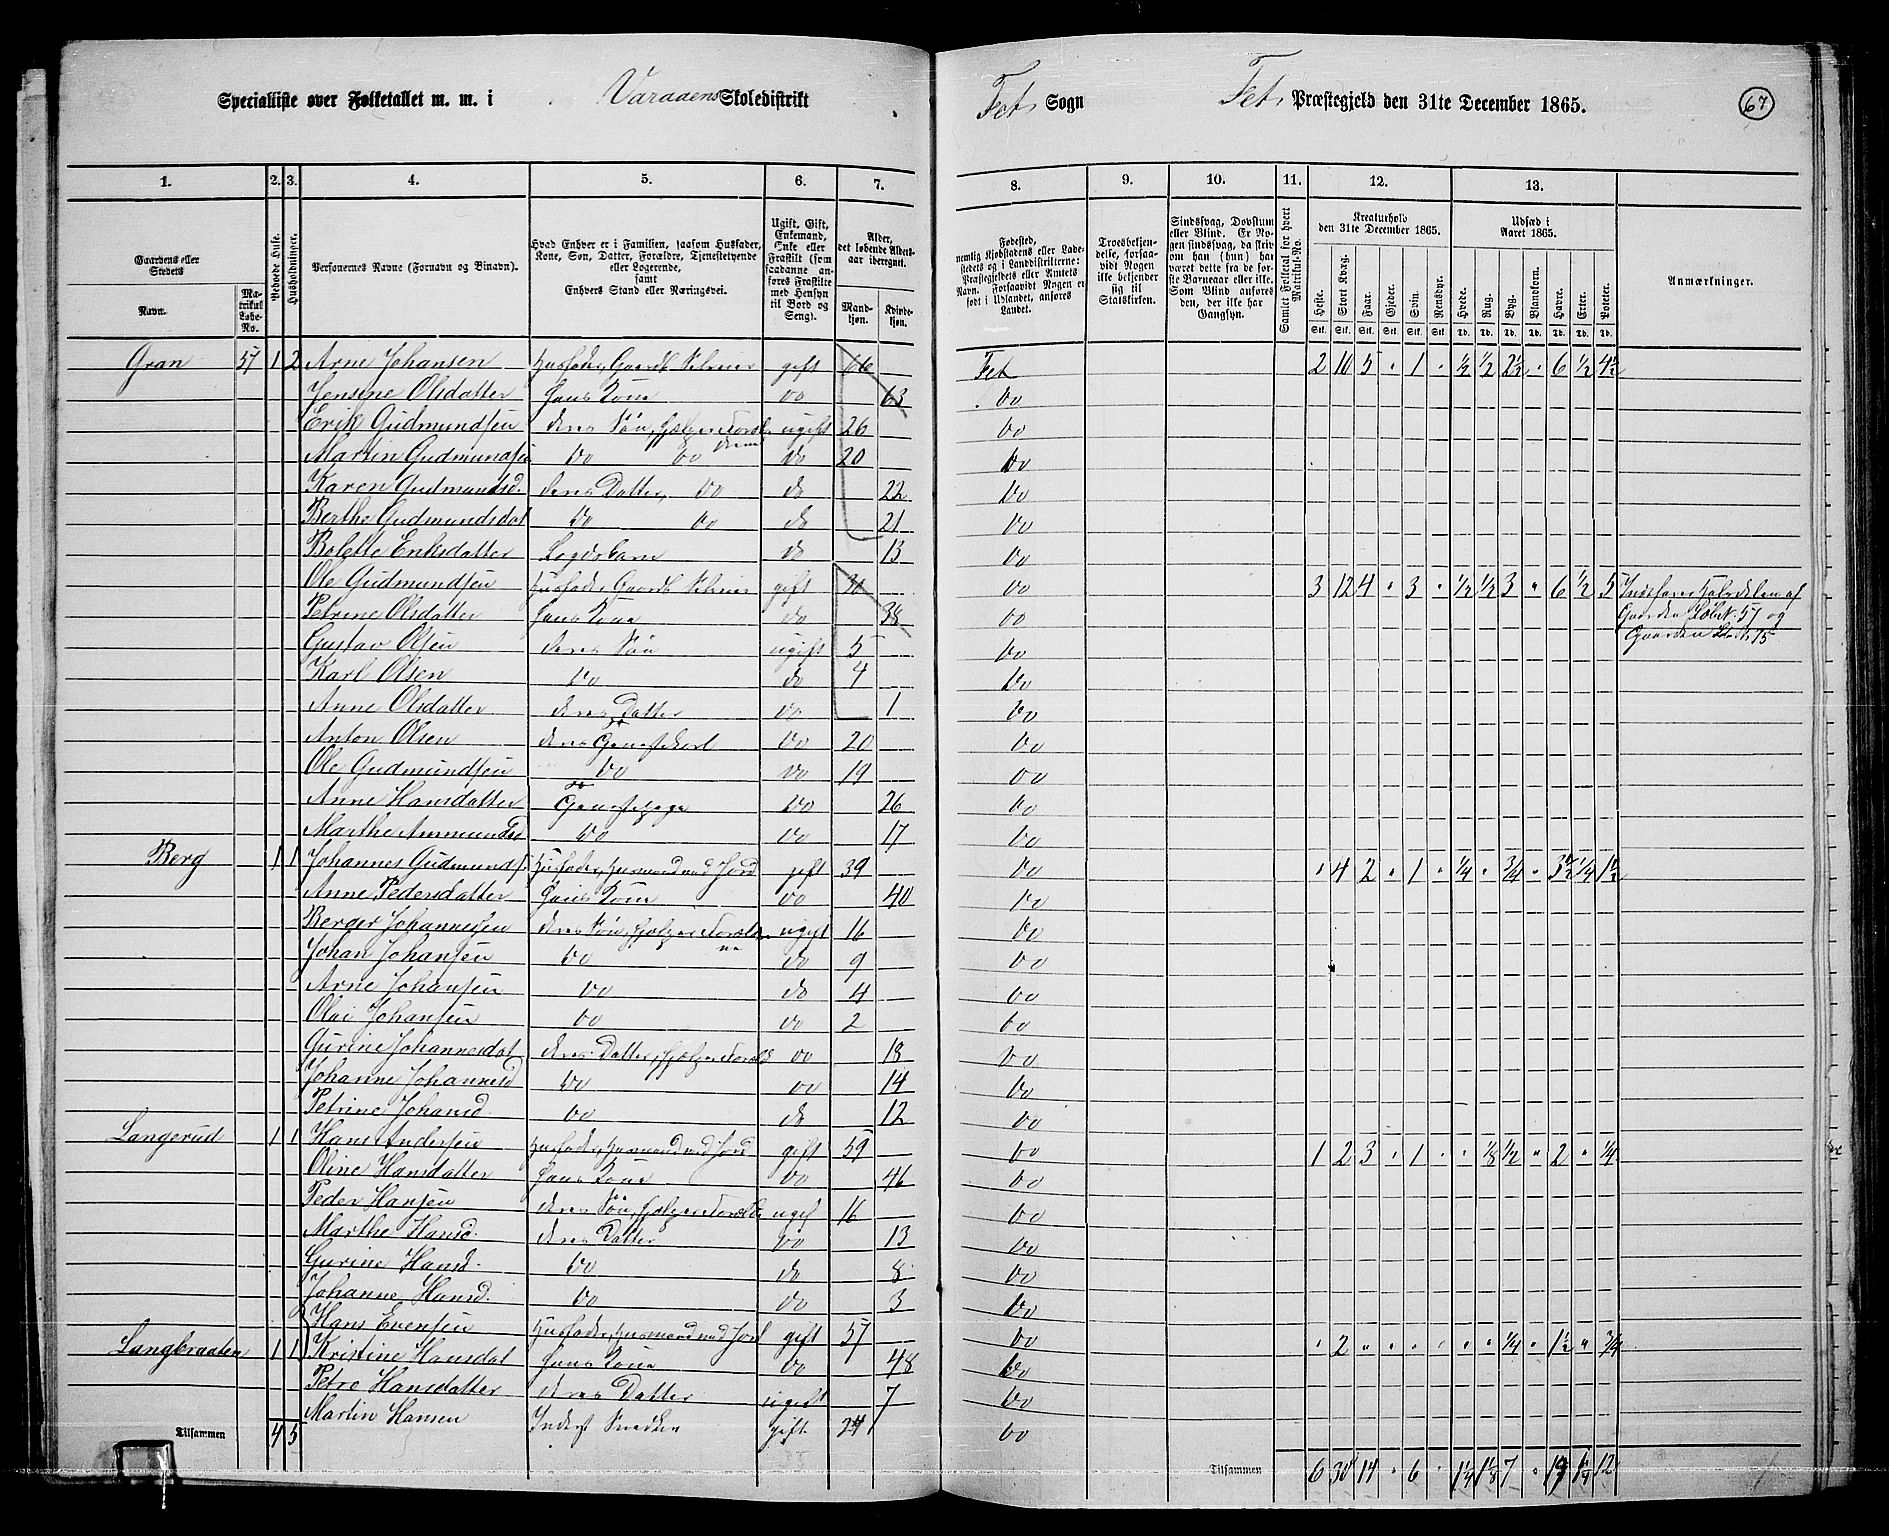 Specialliste over Folketallet m. m. i Varaaens Skoledistrikt Fet Sogn Fet Præstegjeld den 31te December 1865. 67
1. 2. 3. 4. 5. 6. 7. 8. 9. 10. 11. 12. 13.
Gaardens eller Stedets Navn. Matrikul Løbe-No. Beboede Huse. Husholdninger. Personernes Navne (Fornavn og Binavn). Hvad Enhver er i Familien, saasom Husfader, Kone, Søn, Datter, Forældre, Tjenestetyende eller Logerende, samt Enhvers Stand eller Næringsvei. Ugift, Gift, Enkemand, Enke eller Fraskilt (som saadanne anføres Fraskilte med Hensyn til Bord og Seng). Alder, det løbende Aldersaar iberegnet. Mandkjøn. Kvindekjøn.
Fødested, nemlig Kjøbstadens eller Ladestedets og i Landdistrikterne: Præstegjeldets eller Amtets Navn. Forsaavidt Nogen er født i Udlandet, anføres Landet. Troesbekjendelse, forsaavidt Nogen ikke bekjender sig til Statskirken. Sindssvag, Døvstum eller Blind. Er Nogen sindssvag, da skriv om han (hun) har været dette fra de første Barneaar eller ikke. Som Blind anføres den, der ikke har Gangsyn. Samlet Folketal for hvert Matrikul-No. Kreaturhold den 31te December 1865. Heste. Stort Kvæg. Faar. Gjeder. Svin. Rensdyr. Udsæd i Aaret 1865. Hvede. Rug. Byg. Blandkorn. Havre. Erter. Poteter. Anmærkninger.
Stk. Stk. Stk. Stk. Stk. Stk. Td. Td. Td. Td. Td. Td. Td.
Gran 57 1 2 Arne Johansen Husfader, Gaardb. Selveier gift 66 Fet 2 10 5 " 1 " ½ ½ 2½ " 6 ½ 4½
Jensine Olsdatter Hans Kone do 63 do
Erik Gudmundsen deres Søn, hjælper Forældrene ugift 26 do
Martin Gudmundsen do do do 20 do
Karen Gudmundsd. deres Datter, do do 22 do
Berthe Gudmundsdat do do do 21 do
Bolette Eriksdatter Legdsbarn do 13 do
Ole Gudmundsen Husfader, Gaardb. Selveier gift 36 do 3 12 4 " 3 " ½ ½ 3 " 6 ½ 5
Petrine Olsdatter Hans Kone do 38 do Gaarden Løbe N. 57 og
Gustav Olsen deres Søn ugift 5 do Gaarden
Karl Olsen do do 4 do
Anne Olsdatter deres Datter do 1 do
Anton Olsen deres Tjenestekarl do 20 do
Ole Gudmundsen do do 19 do
Anne Hansdatter do Tjenestepige do 26 do
Marthe Ammundsd do do 17 do
Berg 1 1 Johannes Gudmunds. Husfader, Husmand med Jord gift 39 do " 4 2 " 1 " ¼ " ¾ " 3½ ¼ 1½
Anne Pedersdatter Hans Kone do 40 do
Berger Johannesen deres Søn, hjælper Forældrene ugift 16 do
Johan Johansen do do 9 do
Arne Johansen do do 4 do
Olai Johansen do do 2 do
Gurine Johannesdat deres Datter, hjælper Foræld do 18 do
Johanne Johannesd do do 14 do
Petrine Johansd. do do 12 do
Langerud 1 1 Hans Andersen Husfader, Husmand med Jord gift 59 do 1 2 3 " 1 " " ⅛ ½ " 2 " ¼
Oline Hansdatter Hans Kone do 46 do
Peder Hansen deres Søn, hjælper Foræld ugif 16 do
Marthe Hansd. deres Datter do 13 do
Gurine Hansd. do do 8 do
Johanne Hansd. do do 3 do
Hans Evensen Husfader, Husmand med Jord gift 57 do " 2 " " " " " " ¼ " 1½ " ¾
Langbraaten 1 1 Kristine Hansdat Hans Kone do 48 do
Petre Hansdatter deres Datter ugift 7 do
Martin Hansen Inderst Snedker gift 24 do
Tilsammen 4 5 Tilsammen 6 30 14 " 6 " 1¼ 1⅛ 7 " 19 1¼ 12